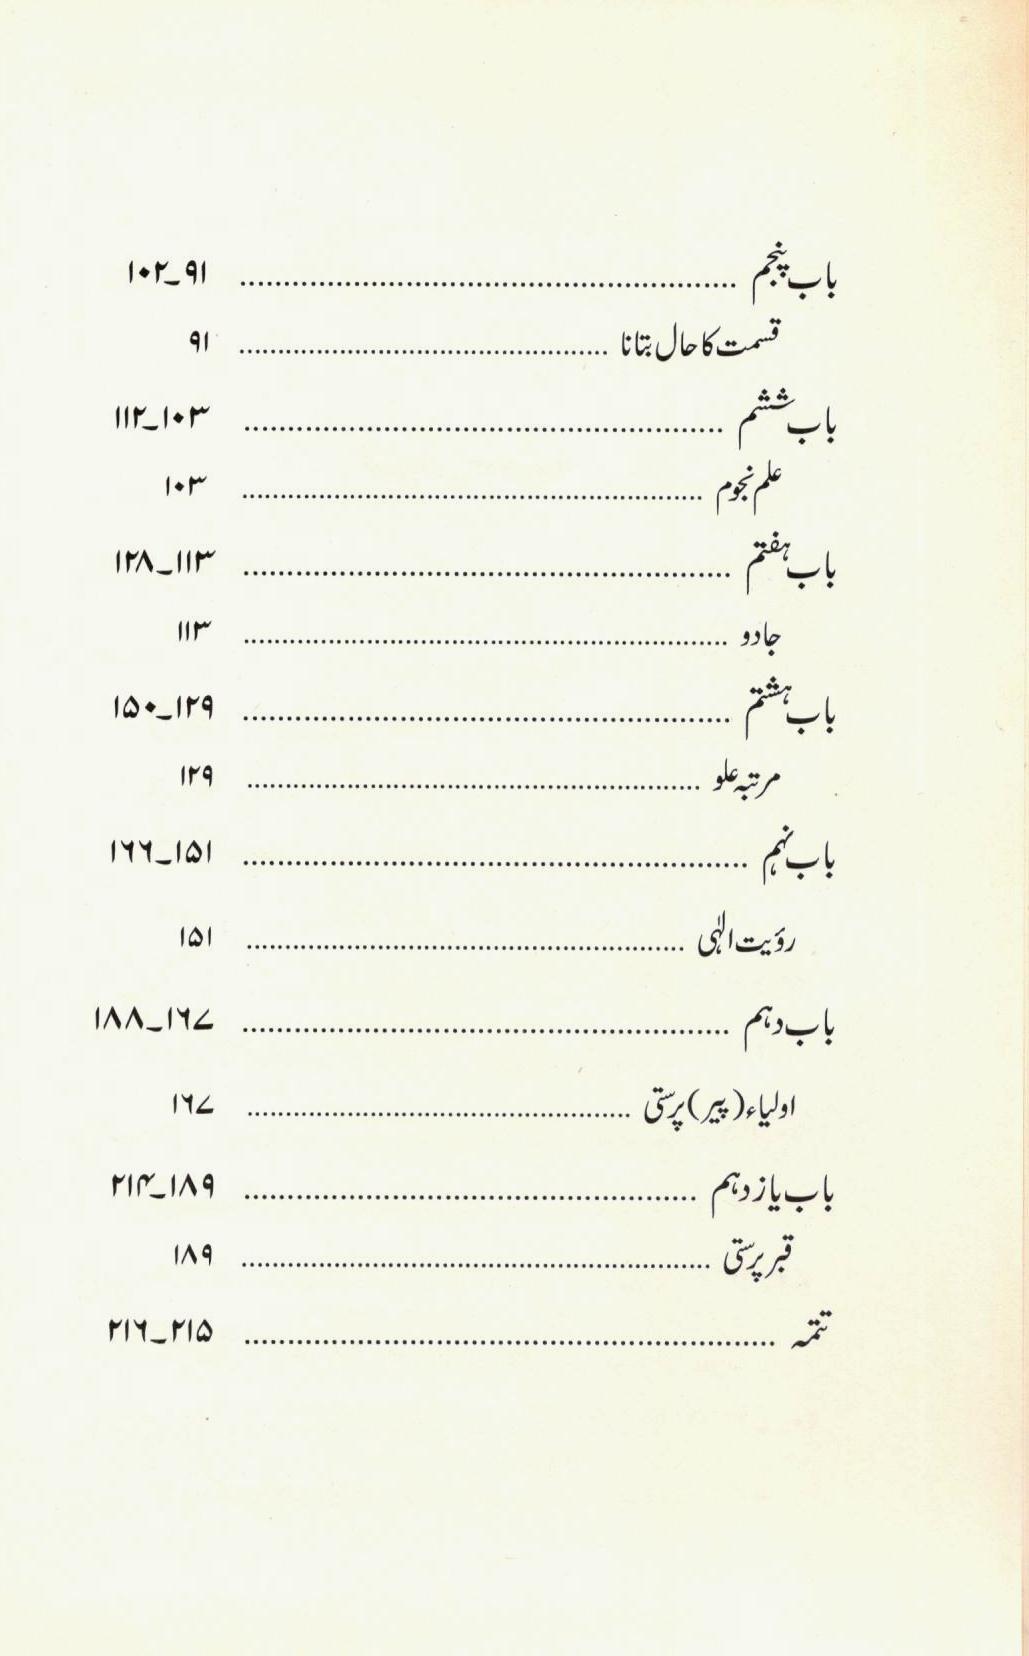 باب پنجم ........................................ ۹۱ـ۱۰۲
قسمت کا حال بتانا ........................................ ۹۱
باب ششم ........................................ ۱۰۳ـ۱۱۲
علم نجوم ........................................ ۱۰۳
باب ہفتم ........................................ ۱۱۳ـ۱۲۸
جادو ........................................ ۱۱۳
باب ہشتم ........................................ ۱۲۹ـ۱۵۰
مرتبہ علو ........................................ ۱۲۹
باب نہم ........................................ ۱۵۱ـ۱۶۶
رؤیت الٰہی ........................................ ۱۵۱
باب دہم ........................................ ۱۶۷ـ۱۸۸
اولیاء (پیر) پرستی ........................................ ۱۶۷
باب یازدہم ........................................ ۱۸۹ـ۲۱۴
قبر پرستی ........................................ ۱۸۹
تتمہ ........................................ ۲۱۵ـ۲۱۶